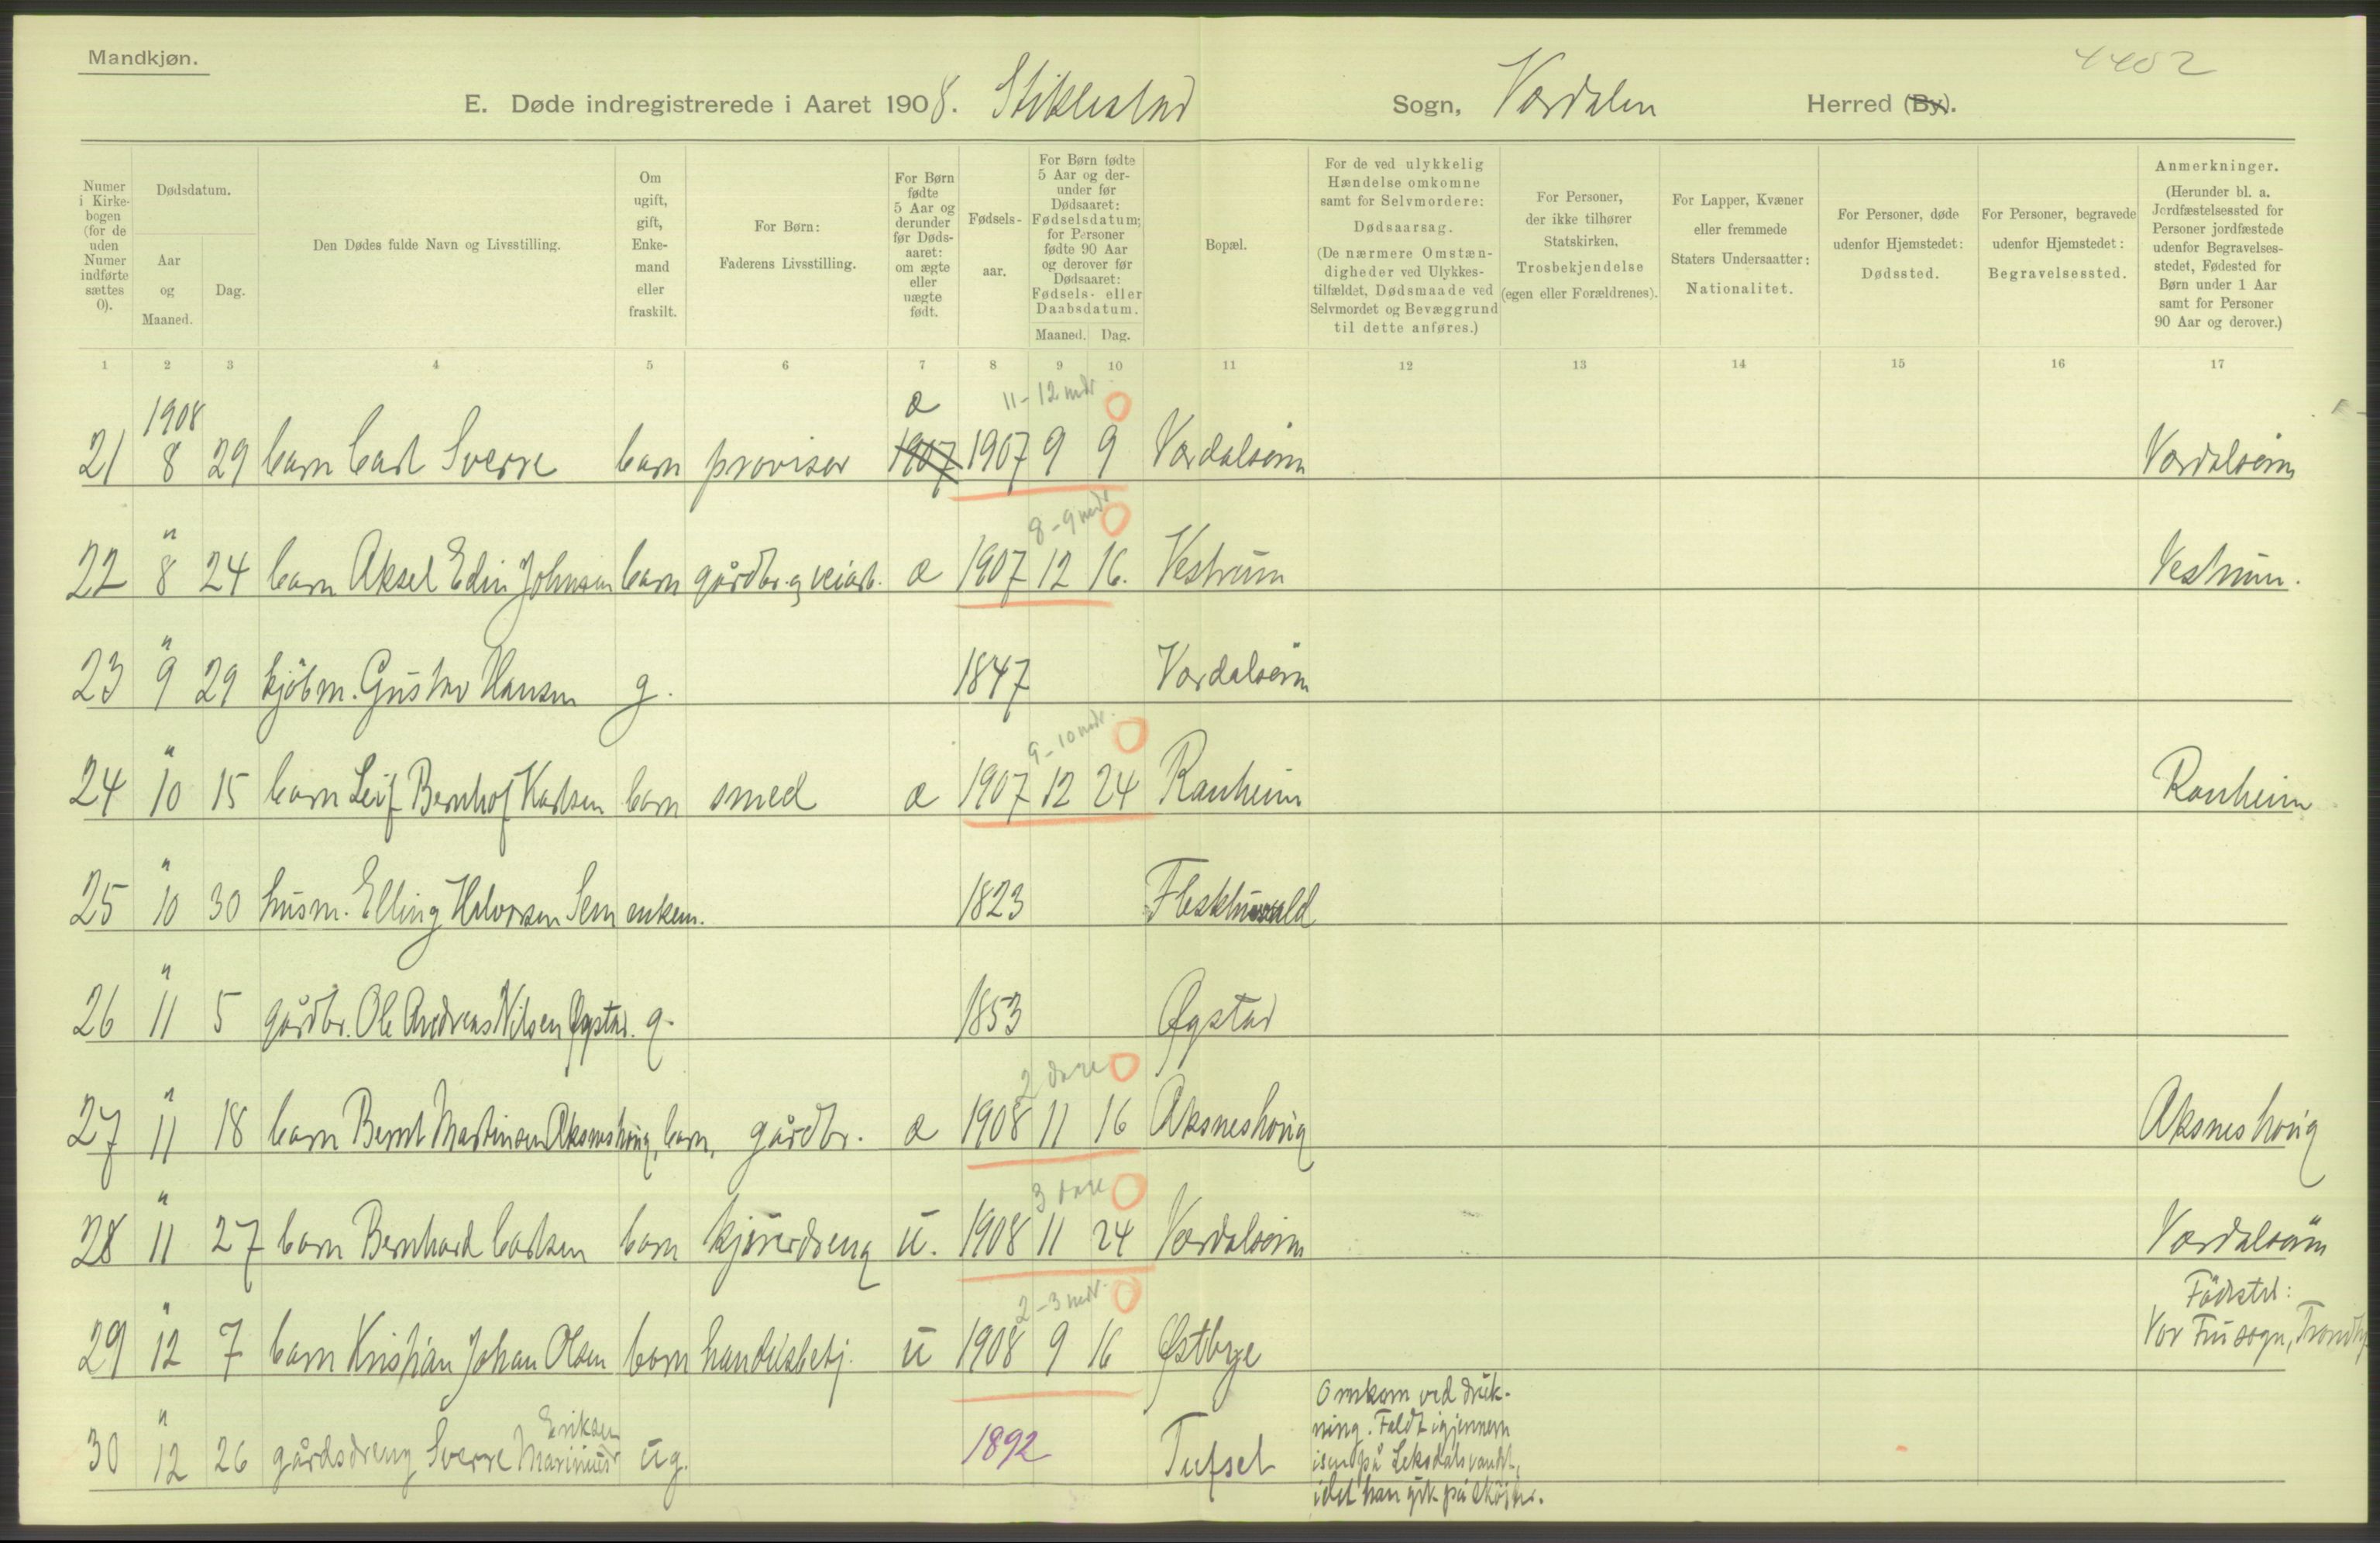 Mandkjøn.
4402
E. Døde indregistrerede i Aaret 1908. Stiklestad Sogn, Værdalen Herred (By).
Numer i Kirke- bogen (for de uden Numer indførte sættes 0).
Dødsdatum.
Aar og Maaned.
Dag.
Den Dødes fulde Navn og Livsstilling.
Om ugift, gift, Enke- mand eller fraskilt.
For Børn:
Faderens Livsstilling.
For Børn fødte 5 Aar og derunder før Døds- aaret: om ægte eller uægte født.
Fødsels- aar.
For Børn fødte 5 Aar og der- under før Dødsaaret: Fødselsdatum; for Personer fødte 90 Aar og derover før Dødsaaret: Fødsels- eller Daabsdatum.
Maaned. Dag.
Bopæl.
For de ved ulykkelig Hændelse omkomne samt for Selvmordere:
Dødsaarsag.
(De nærmere Omstæn- digheder ved Ulykkes- tilfældet, Dødsmaade ved Selvmordet og Bevæggrund til dette anføres.)
For Personer, der ikke tilhører Statskirken,
Trosbekjendelse
(egen eller Forældrenes).
For Lapper, Kvæner eller fremmede Staters Undersaatter:
Nationalitet.
For Personer, døde udenfor Hjemstedet:
Dødssted.
For Personer, begravede udenfor Hjemstedet:
Begravelsessted.
Anmerkninger.
(Herunder bl. a. Jordfæstelsessted for Personer jordfæstede udenfor Begravelses- stedet, Fødested for Børn under 1 Aar samt for Personer 90 Aar og derover.)
1 2 3 4 5 6 7 8 9 10 11 12 13 14 15 16 17
1908 æ 11-12 mdr
21 8 29 barn Carl Sverre barn provisor 1907 1907 9 9 Værdalsøren Værdalsøren
" 8-9 mdr
22 8 24 barn Aksel Edin Johnsen barn gårdbr. og veiarb. æ 1907 12 16. Vestrum Vestrum.
"
23 9 29 kjøbm. Gustav Hansen g. 1847 Værdalsøren
" 9-10 mdr.
24 10 15 barn Leif Bernhof Karlsen barn smed æ 1907 12 24 Ranheim Ranheim
"
25 10 30 husm. Elling Halvorsen Sem enkem. 1823
"
26 11 5 gårdbr. Ole Andreas Nilsen Øgstad. g. 1853 Øgstad
" 2 dage
27 11 18 barn Bernt Martinsen Aksneshoug, barn, gårdbr. æ 1908 11 16 Aksneshoug Aksneshoug
" 3 dage
28 11 27 barn Bernhard Carlsen barn kjøredreng u. 1908 11 24 Værdalsøren Værdalsøren
" 2-3 mdr. Fødested:
29 12 7 barn Kristian Johan Olsen barn handelsbetj. u 1908 9 16 Østbye Vor Frue sogn, Trondhj.
" Eriksen
30 12 26 gårdsdreng Sverre Marinius ug. 1892 Tufset
Omkom ved druk-
ning. Faldt igjennem
isen på Leksdalsvandet,
idet han gik på skøjter.